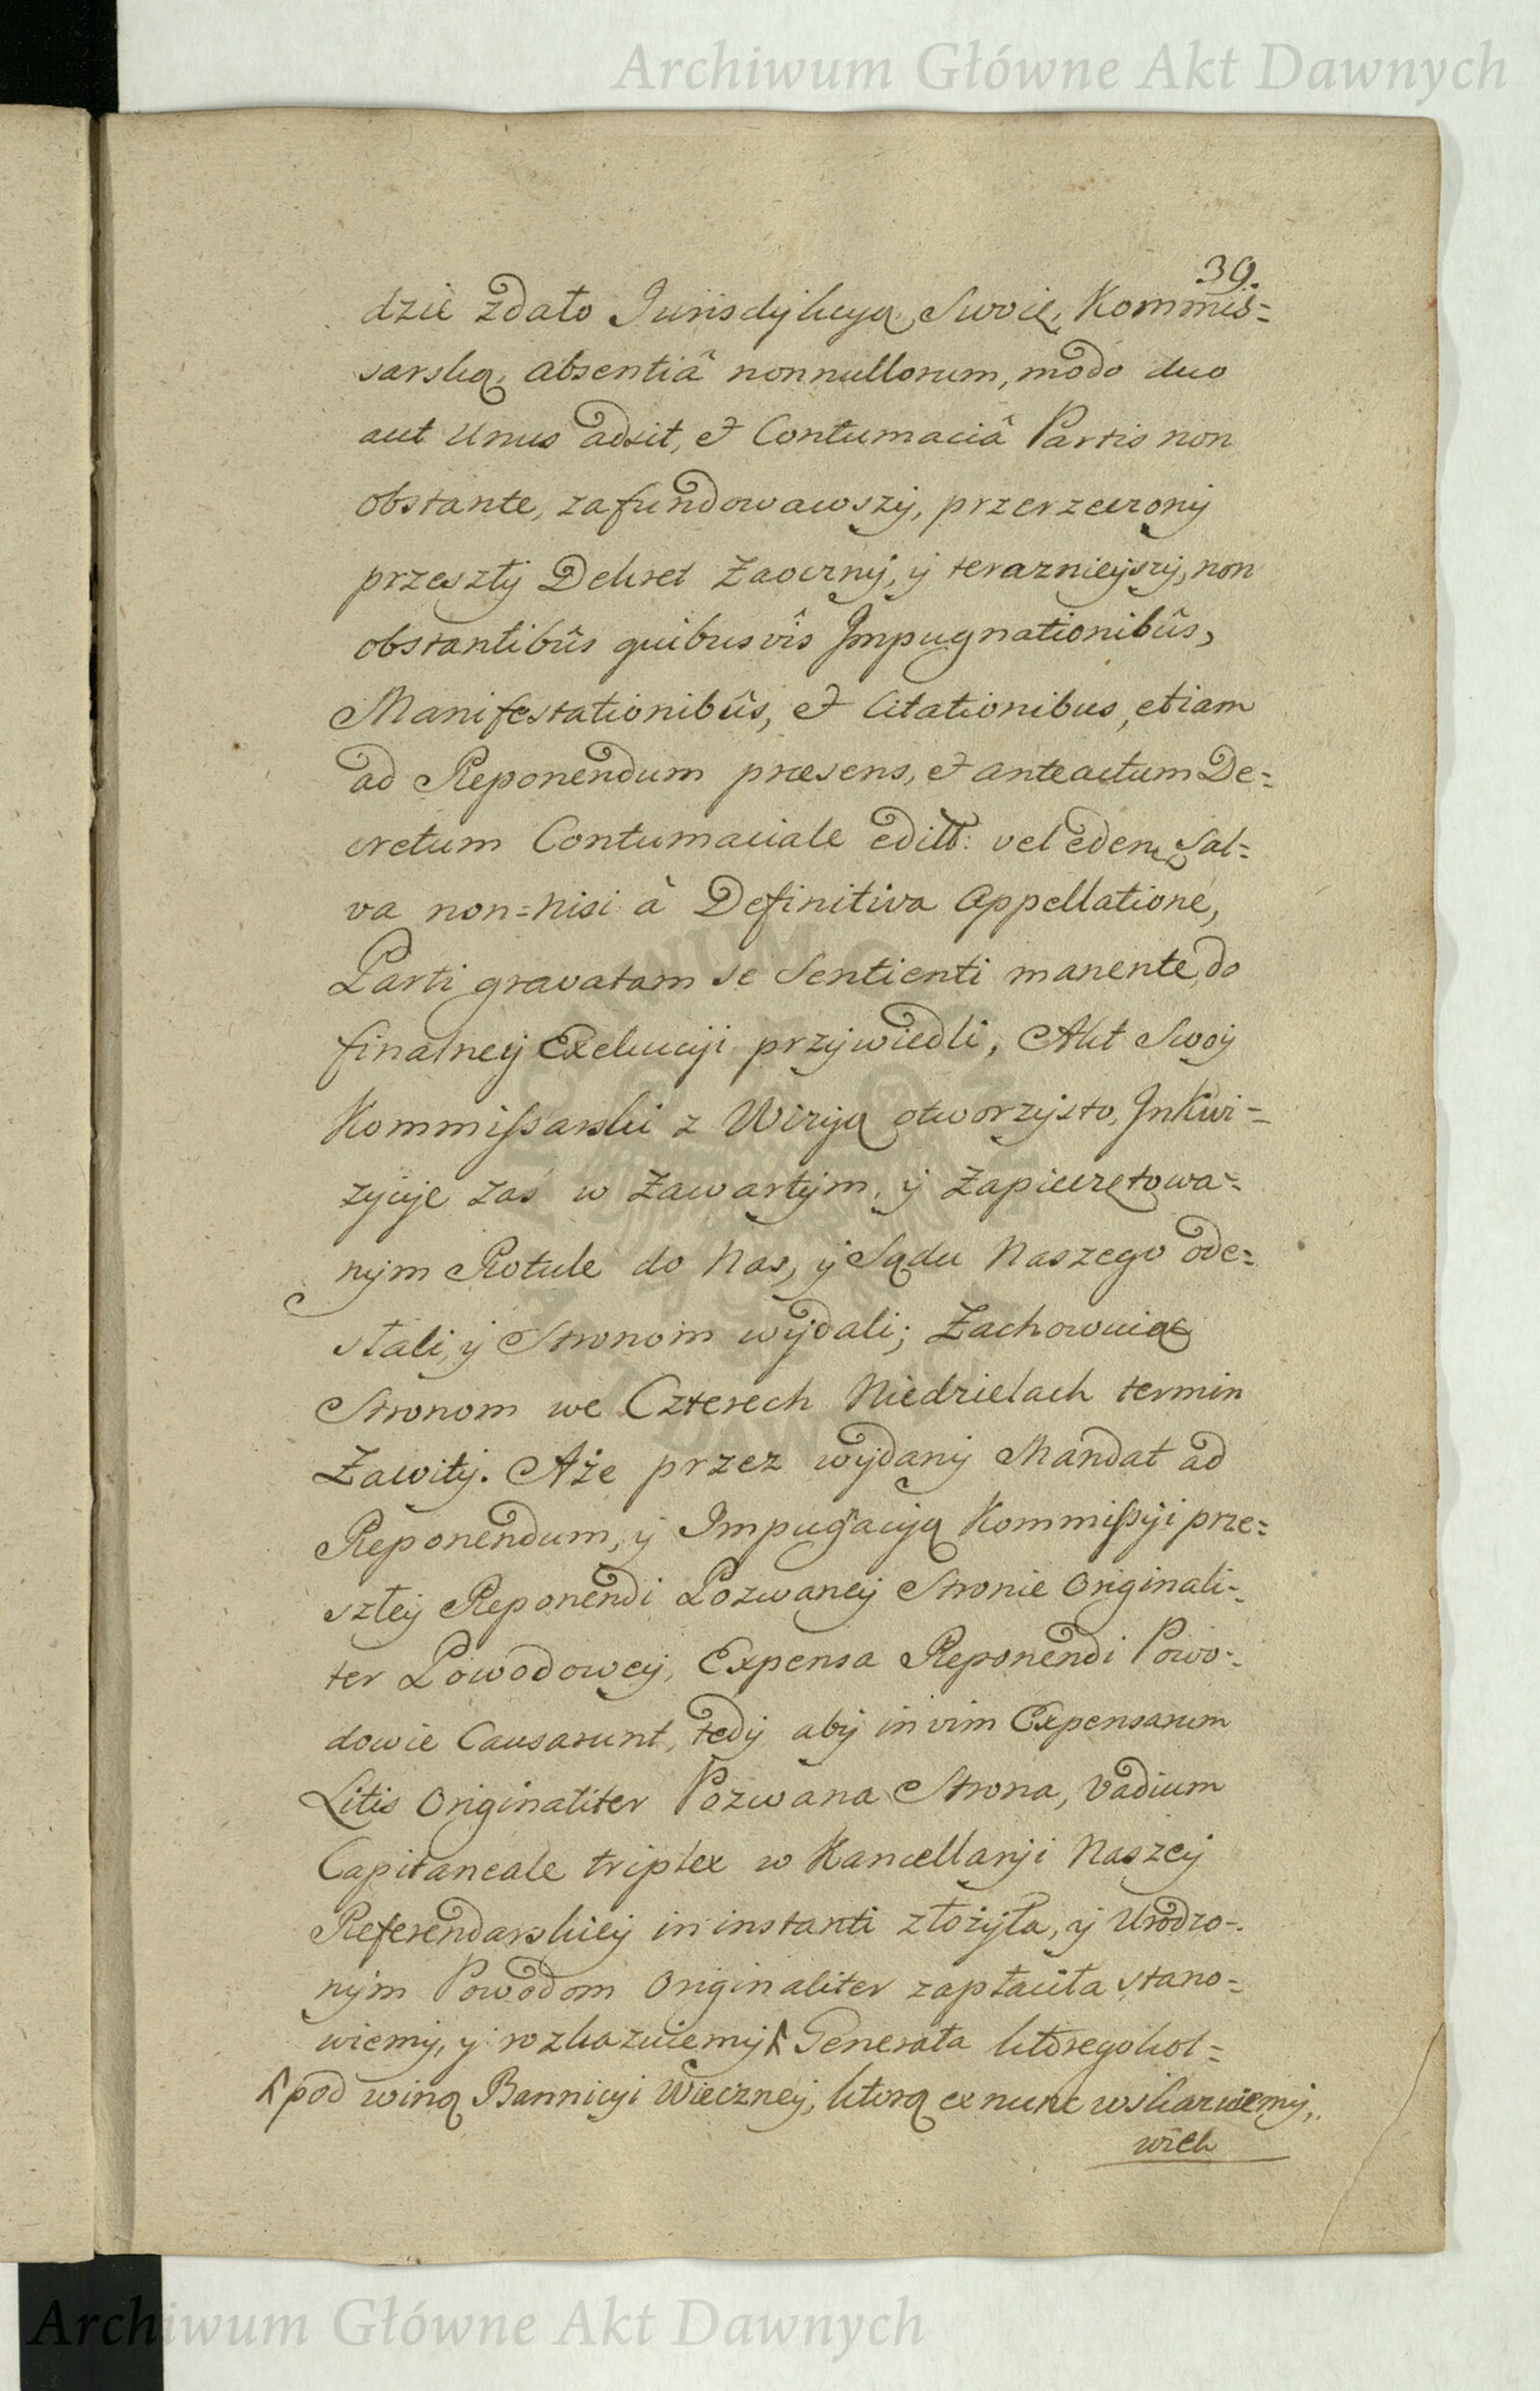 Archiwum Główne Akt Dawnych
39.
dzie zdało Jurisdykcyą Swoię Kommis=
sarską, absentiâ nonnullorum, modo duo
aut Unus adsit, et Contumaciâ Partis non
obstante, zafundowawszy, przerzeczony
przeszły Dekret Zaoczny, y teraznieyszy, non
obstantibûs quibusvîs Impugnationibûs,
Manifestationibûs, et Citationibus, etiam
ad Reponendum præsens, et anteactum De=
cretum Contumaciale editt: vel eden, Sal=
va non=nisi â Definitiva Appellatione,
Parti gravatam se Sentienti manente, do
finalney Exekucyi przywiedli, Akt Swoy
Kommissarski z Wizyą otworzysto, Inkwi=
zycye zaś w Zawartym, y Zapieczętowa=
nym Rotule do Nas, y Sądu Naszego ode=
słali, y Stronom wydali; Zachowuiąc
Stronom we Czterech Niedzielach termin
Zawity. Aże przez wydany Mandat ad
Reponendum, y Impugacyą Kommissyi prze=
szłey Reponendi Pozwaney Stronie Originali=
ter Powodowey, Expensa Reponendi Powo=
dowie Causarunt, tedy aby in vim Expensarum
Litis Originaliter Pozwana Strona, Vadium
Capitaneale triplex w Kancellaryi Naszey
Referendarskiey in instanti złożyła, y Urodzo=
nym Powodom Originaliter zapłaciła stano=
wiemy, y rozkazuiemy Generała któregokol=
pod winą Bannicyi Wieczney, którą ex nunc wskazuiemy,
wiek
Archiwum Główne Akt Dawnych